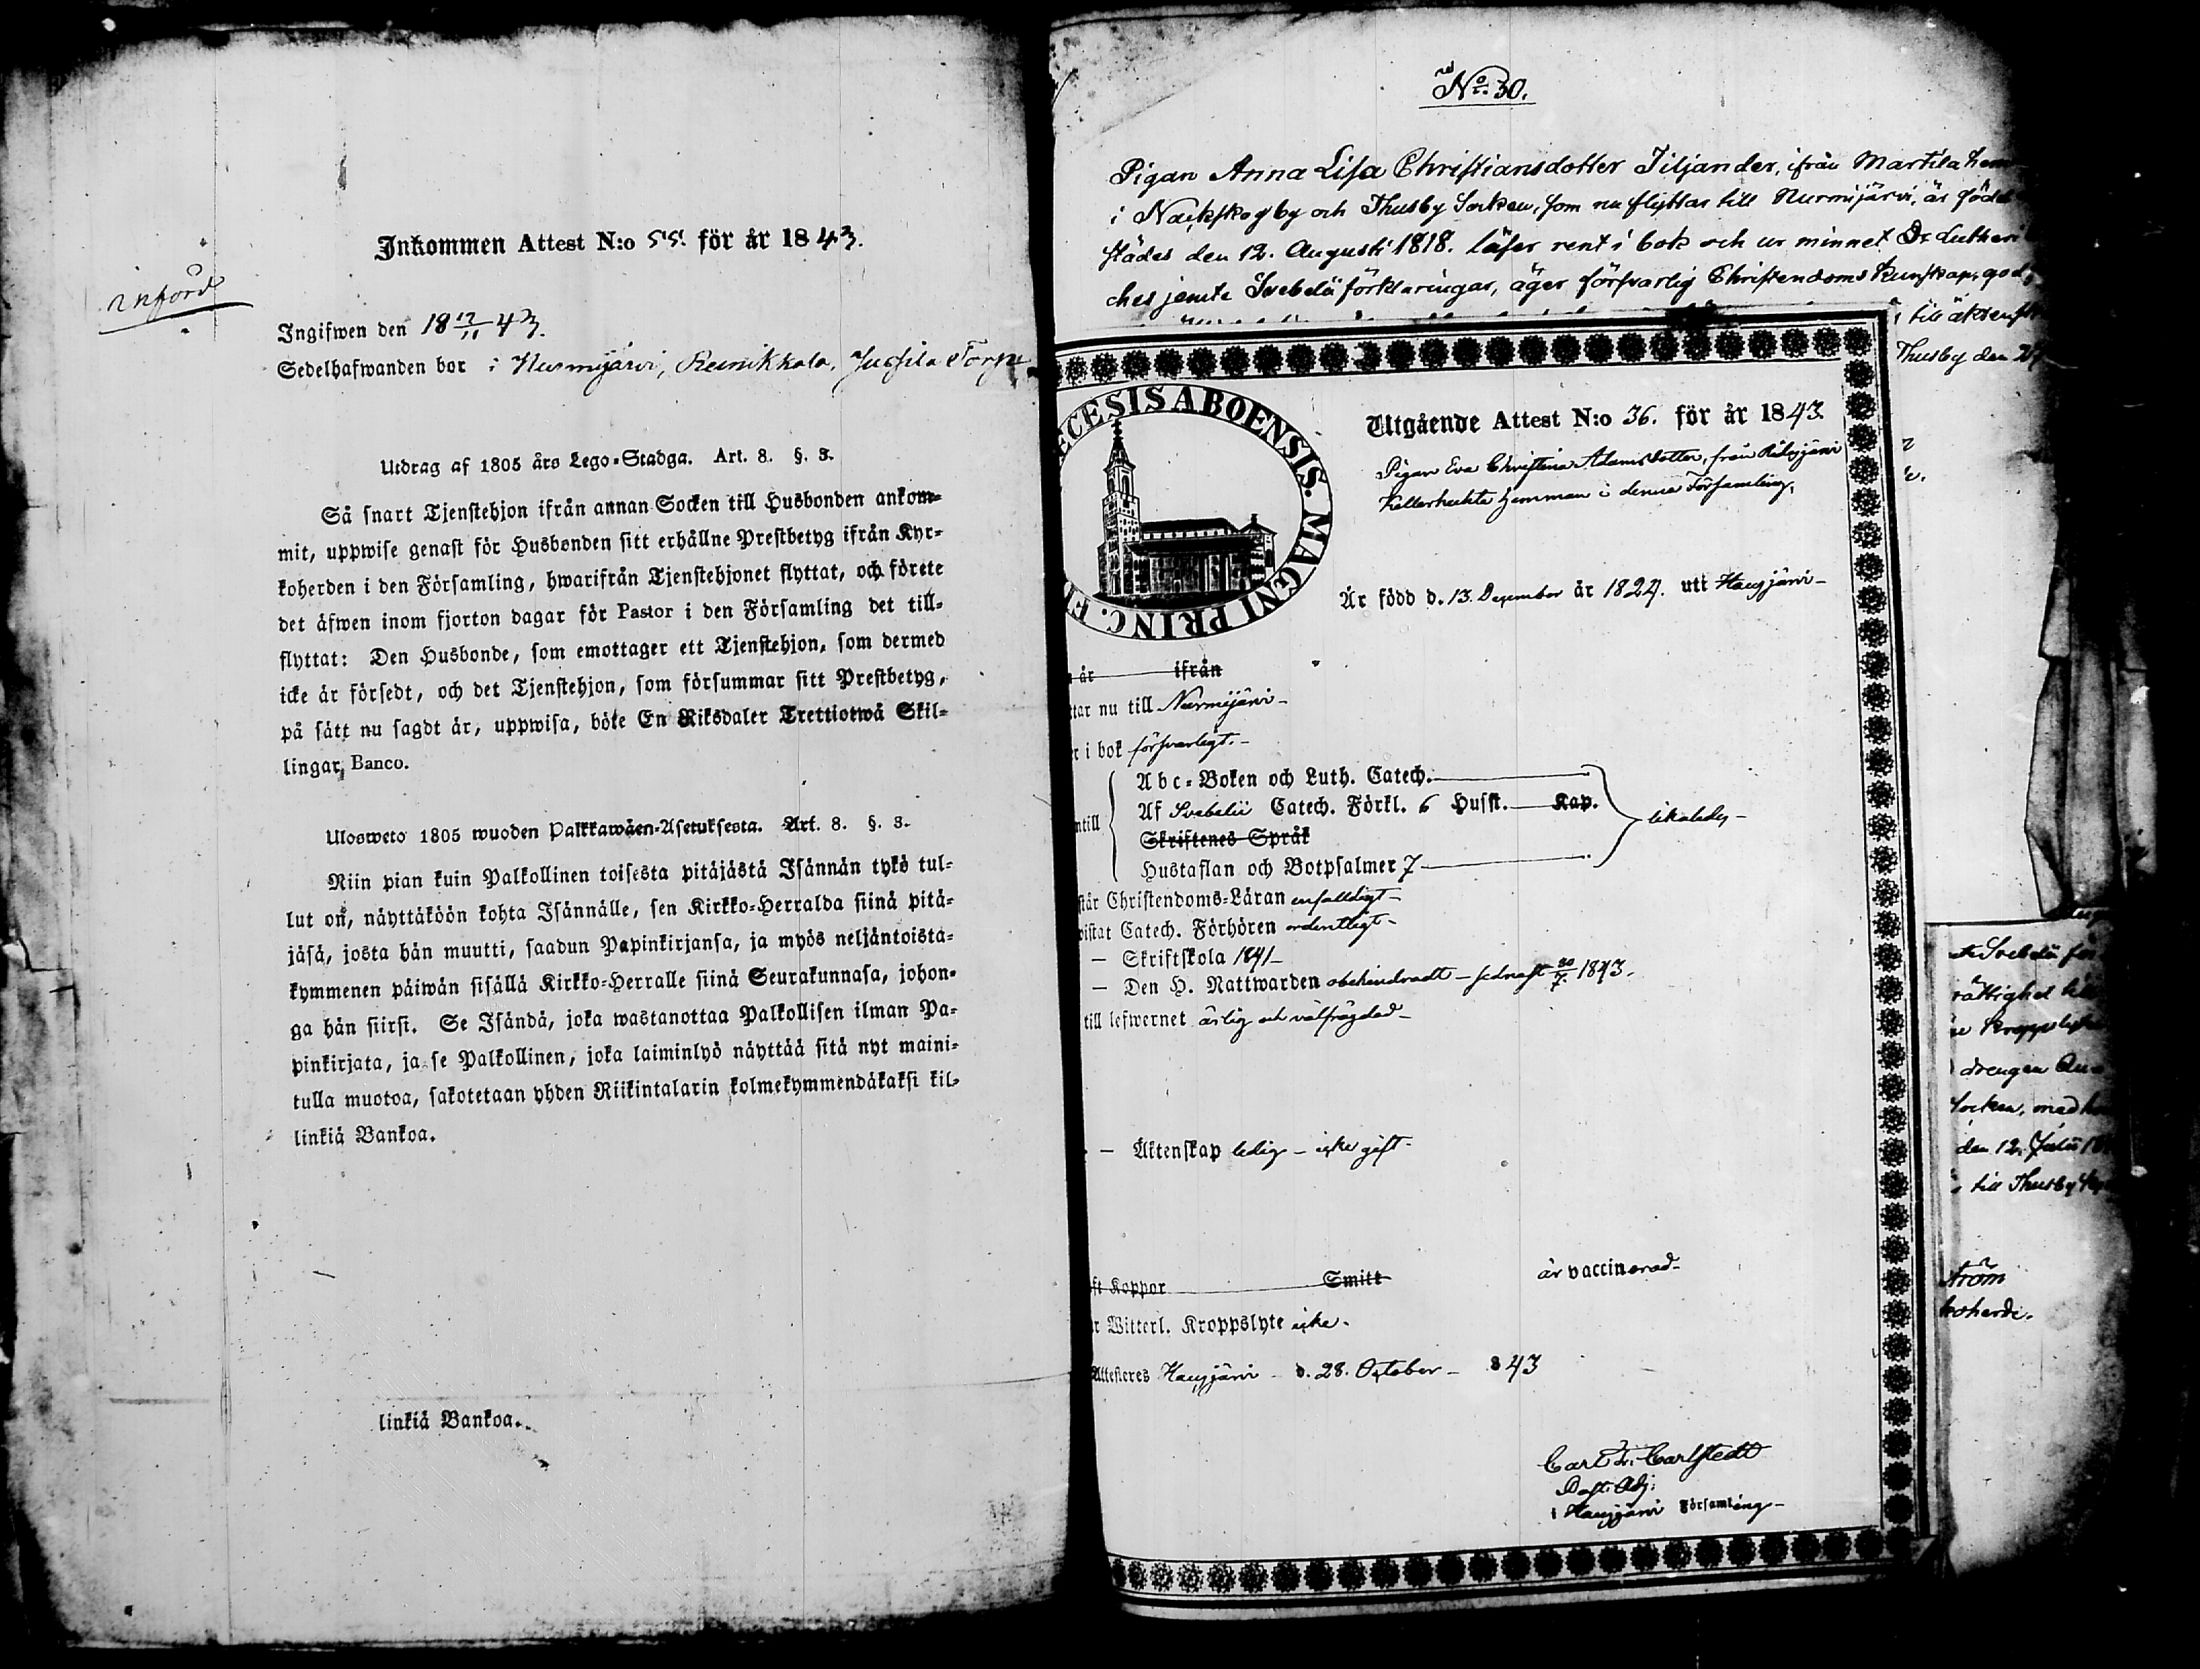 införd
Inkommen Attest N:o 55. för år 1843.
Ingifwen den 18 12/11 43.
Sedelhafwanden bor i Nurmijärvi, Reunikkala, Jussila Torp
Utdrag af 1805 års Lego-Stadga. Art. 8. §. 3.
Så snart Tjenstehjon ifrån annan Socken till Husbonden ankom-
mit, uppwise genast för Husbonden sitt erhållne Prestbetyg ifrån Kyr-
koherden i den Församling, hwarifrån Tjenstehjonet flyttat, och förete
det äfwen inom fjorton dagar för Pastor i den Församling det till-
flyttat: Den Husbonde, som emottager ett Tjenstehjon, som dermed
icke är försedt, och det Tjenstehjon, som försummar sitt Prestbetyg,
på sätt nu sagdt är, uppwisa, böte En Riksdaler Trettiotwå Skil-
lingar, Banco.
Ulosweto 1805 wuoden Palkkawäen-Asetuksesta. Art. 8. §. 3.
Niin pian kuin Palkollinen toisesta pitäjästä Isännän tykö tul-
lut on, näyttäköön kohta Isännälle, sen Kirkko-Herralda siinä pitä-
jäsä, josta hän muutti, saadun Papinkirjansa, ja myös neljäntoista-
kymmenen päiwän sisällä Kirkko-Herralle siinä Seurakunnasa, johon-
ga hän siirsi. Se Isändä, joka wastanottaa Palkollisen ilman Pa-
pinkirjata, ja se Palkollinen, joka laiminlyö näyttää sitä nyt maini-
tulla muotoa, sakotetaan yhden Riikintalarin kolmekymmendäkaksi kil-
linkiä Bankoa.
linkiä Bankoa.
No 30.
Pigan Anna Lisa Christiansdotter Tiljander, ifrån Martila hem
i Nackskogby och Thusby Socken, som nu flyttar till Nurmijärvi, är född
städes den 12. Augusti 1818. läser rent i bok och ur minnet Dr Lutheri
ches jemte Svebelii förklaringar, äger försvarlig Christendoms kunskap, god
till äktensk
Thusby den
ECESIS ABOENSIS. MAGNI PRINC. FI
Utgående Attest N:o 36. för år 1843
Pigan Eva Christina Adamsdotter, från Ridasjärvi
Kellarhuhta hemman i denna Församling,
Är född d. 13. December år 1824. uti Hausjärvi
år ifrån
ttar nu till Nurmijärvi
r i bok försvarligt.
Abc-Boken och Luth. Catech.
Af Svebelii Catech. Förkl. 6 Husst. Kap.
ntill
likaledes
Skriftenes Språk
Hustaflan och Botpsalmer 7
står Christendoms-Läran enfaldigt
wistat Catech. Förhören ordentligt
— Skriftskola 1841
— Den H. Nattwarden obehindradt – sednast 30/7 1843.
till lefwernet ärlig och välfrägdad
— Äktenskap ledig – icke gift
ft Koppor Smitt är vaccinerad
r Witterl. Kroppslyte icke.
Attesteres Hausjärvi d. 28. October 843
Carl Fr. Carlstedt
Past. Adj.
i Hausjärvi Församling
te Svebelii för
rättighet till
Kroppslyte
drengen
Socken, med
den 12. Julii
till Thusby
ström
koherde.